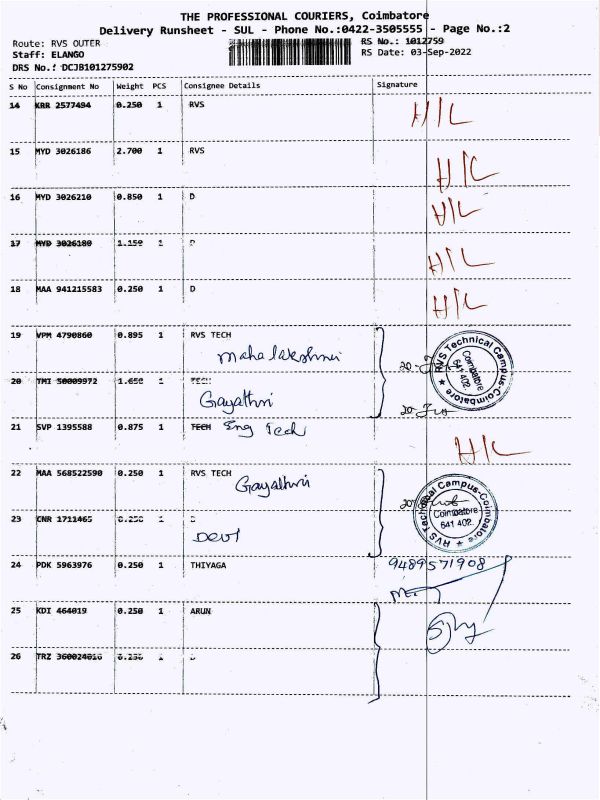 THE PROFESSIONAL COURIERS, Coimbatore
Delivery Runsheet - SUL - Phone No.:0422-3505555 - Page No.:2
Route: RVS OUTER
RS No.: 1012759
Staff: ELANGO
RS Date: 03-Sep-2022
DRS No.: DCJB101275902
S No Consignment No Weight PCS Consignee Details Signature
14 KRR 2577494 0.250 1 RVS H/L
15 MYD 3026186 2.700 1 RVS H/L
16 MYD 3026210 0.850 1 D H/L
17 MYD 3026180 1.150 1 D H/L
18 MAA 941215583 0.250 1 D H/L
19 VPM 4790860 0.895 1 RVS TECH
Mahalakshmi
RVS Technical Campus-Coimbatore
Coimbatore
641 402.
20 TMI 50009972 1.650 1 TECH
Gayathri
21 SVP 1395588 0.875 1 TECH Eng Tech
H/L
22 MAA 568522590 0.250 1 RVS TECH
Gayathri
RVS Technical Campus-Coimbatore
Coimbatore
641 402.
23 CNR 1711465 0.250 1 D
Devi
24 PDK 5963976 0.250 1 THIYAGA 9489571908
25 KDI 464019 0.250 1 ARUN
26 TRZ 360024016 0.250 1 D